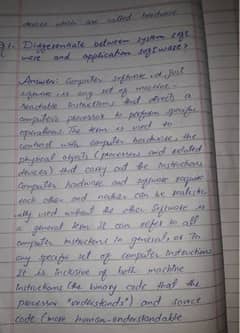 devices which are called hardware.
Q1. Differentiate between system soft
ware and application software?
Answer: Computer software, or just
software is any set of machine-
readable instructions that directs a
computer's processor to perform specific
operations. The term is used to
contrast with computer hardware, the
physical objects (processor and related
devices) that carry out the instructions
Computer hardware and software require
each other and neither can be realistic-
ally used without the other. Software is
a general term. It can refer to all
computer instructions in general or to
any specific set of computer instructions.
It is inclusive of both machine
instructions (the binary code that the
processor "understands") and source
code (more human-understandable